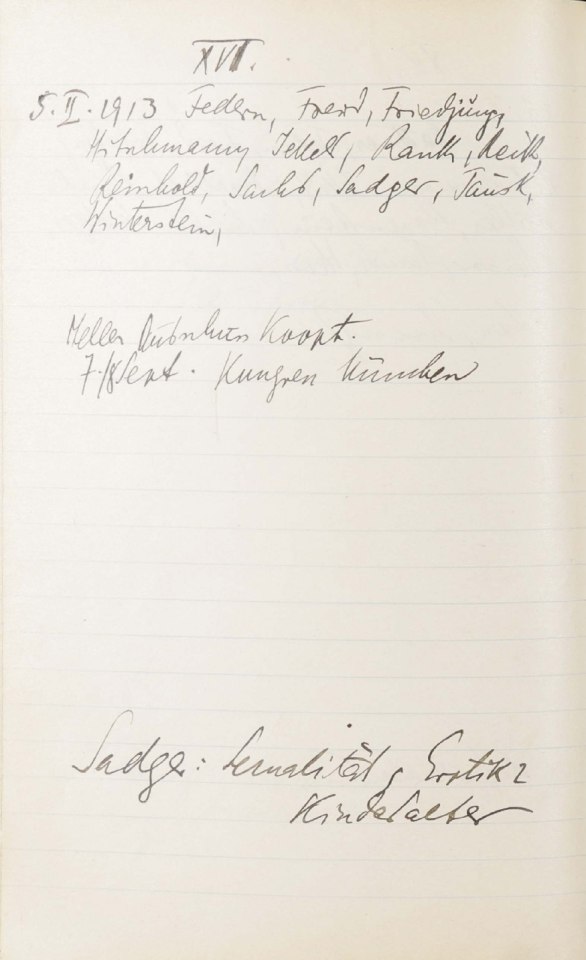 XVI.
5. II. 1913 Federn, Freud, Friedjung,
Hitschmann, Jekels, Rank, Reik,
Reinhold, Sachs, Sadger, Tausk,
Winterstein,
Heller Ausschuss Koopt.
7./8 Sept. Kongress München
Sadger: Sexualität, Erotik
Kindesalter